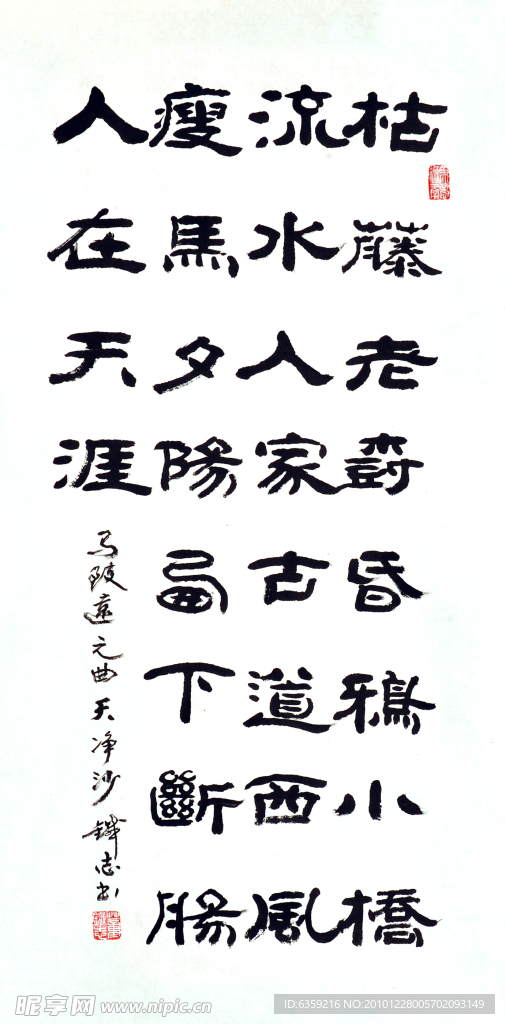 枯藤老樹昏鴉小橋
流水人家古道西風
瘦馬夕陽西下斷腸
人在天涯
马致遠元曲天净沙 鐵志书
昵享网 www.nipic.cn
ID:6359216 NO:20101228005702093149